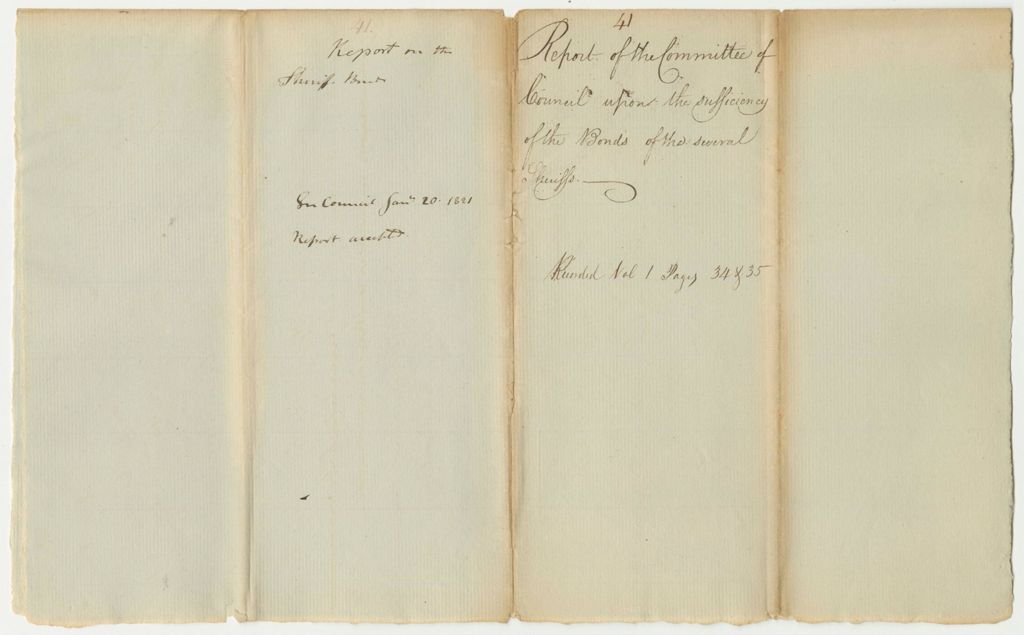 41.
Report on the
Sheriffs Bonds
In Council Jany 20. 1821
Report accepted.
41
Report of the Committee of
Council upon the sufficiency
of the Bonds of the several
Sheriffs.
Recorded Vol 1 Pages 34 & 35